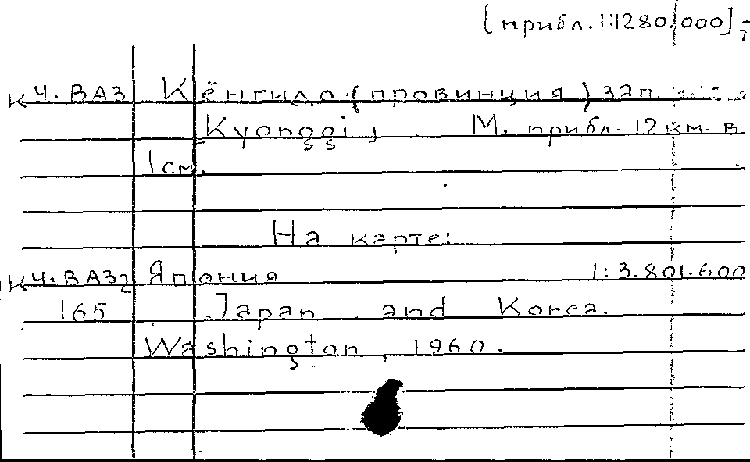 [прибл. 1:1280.000]
К Ч. ВАЗ Кёнгидо (провинция) зап.
Kyonggi, М. прибл. 12 км. в
1 см.
На карте:
К Ч. ВАЗ2 Япония 1:3.801.600
165 Japan and Korea.
Washington, 1960.